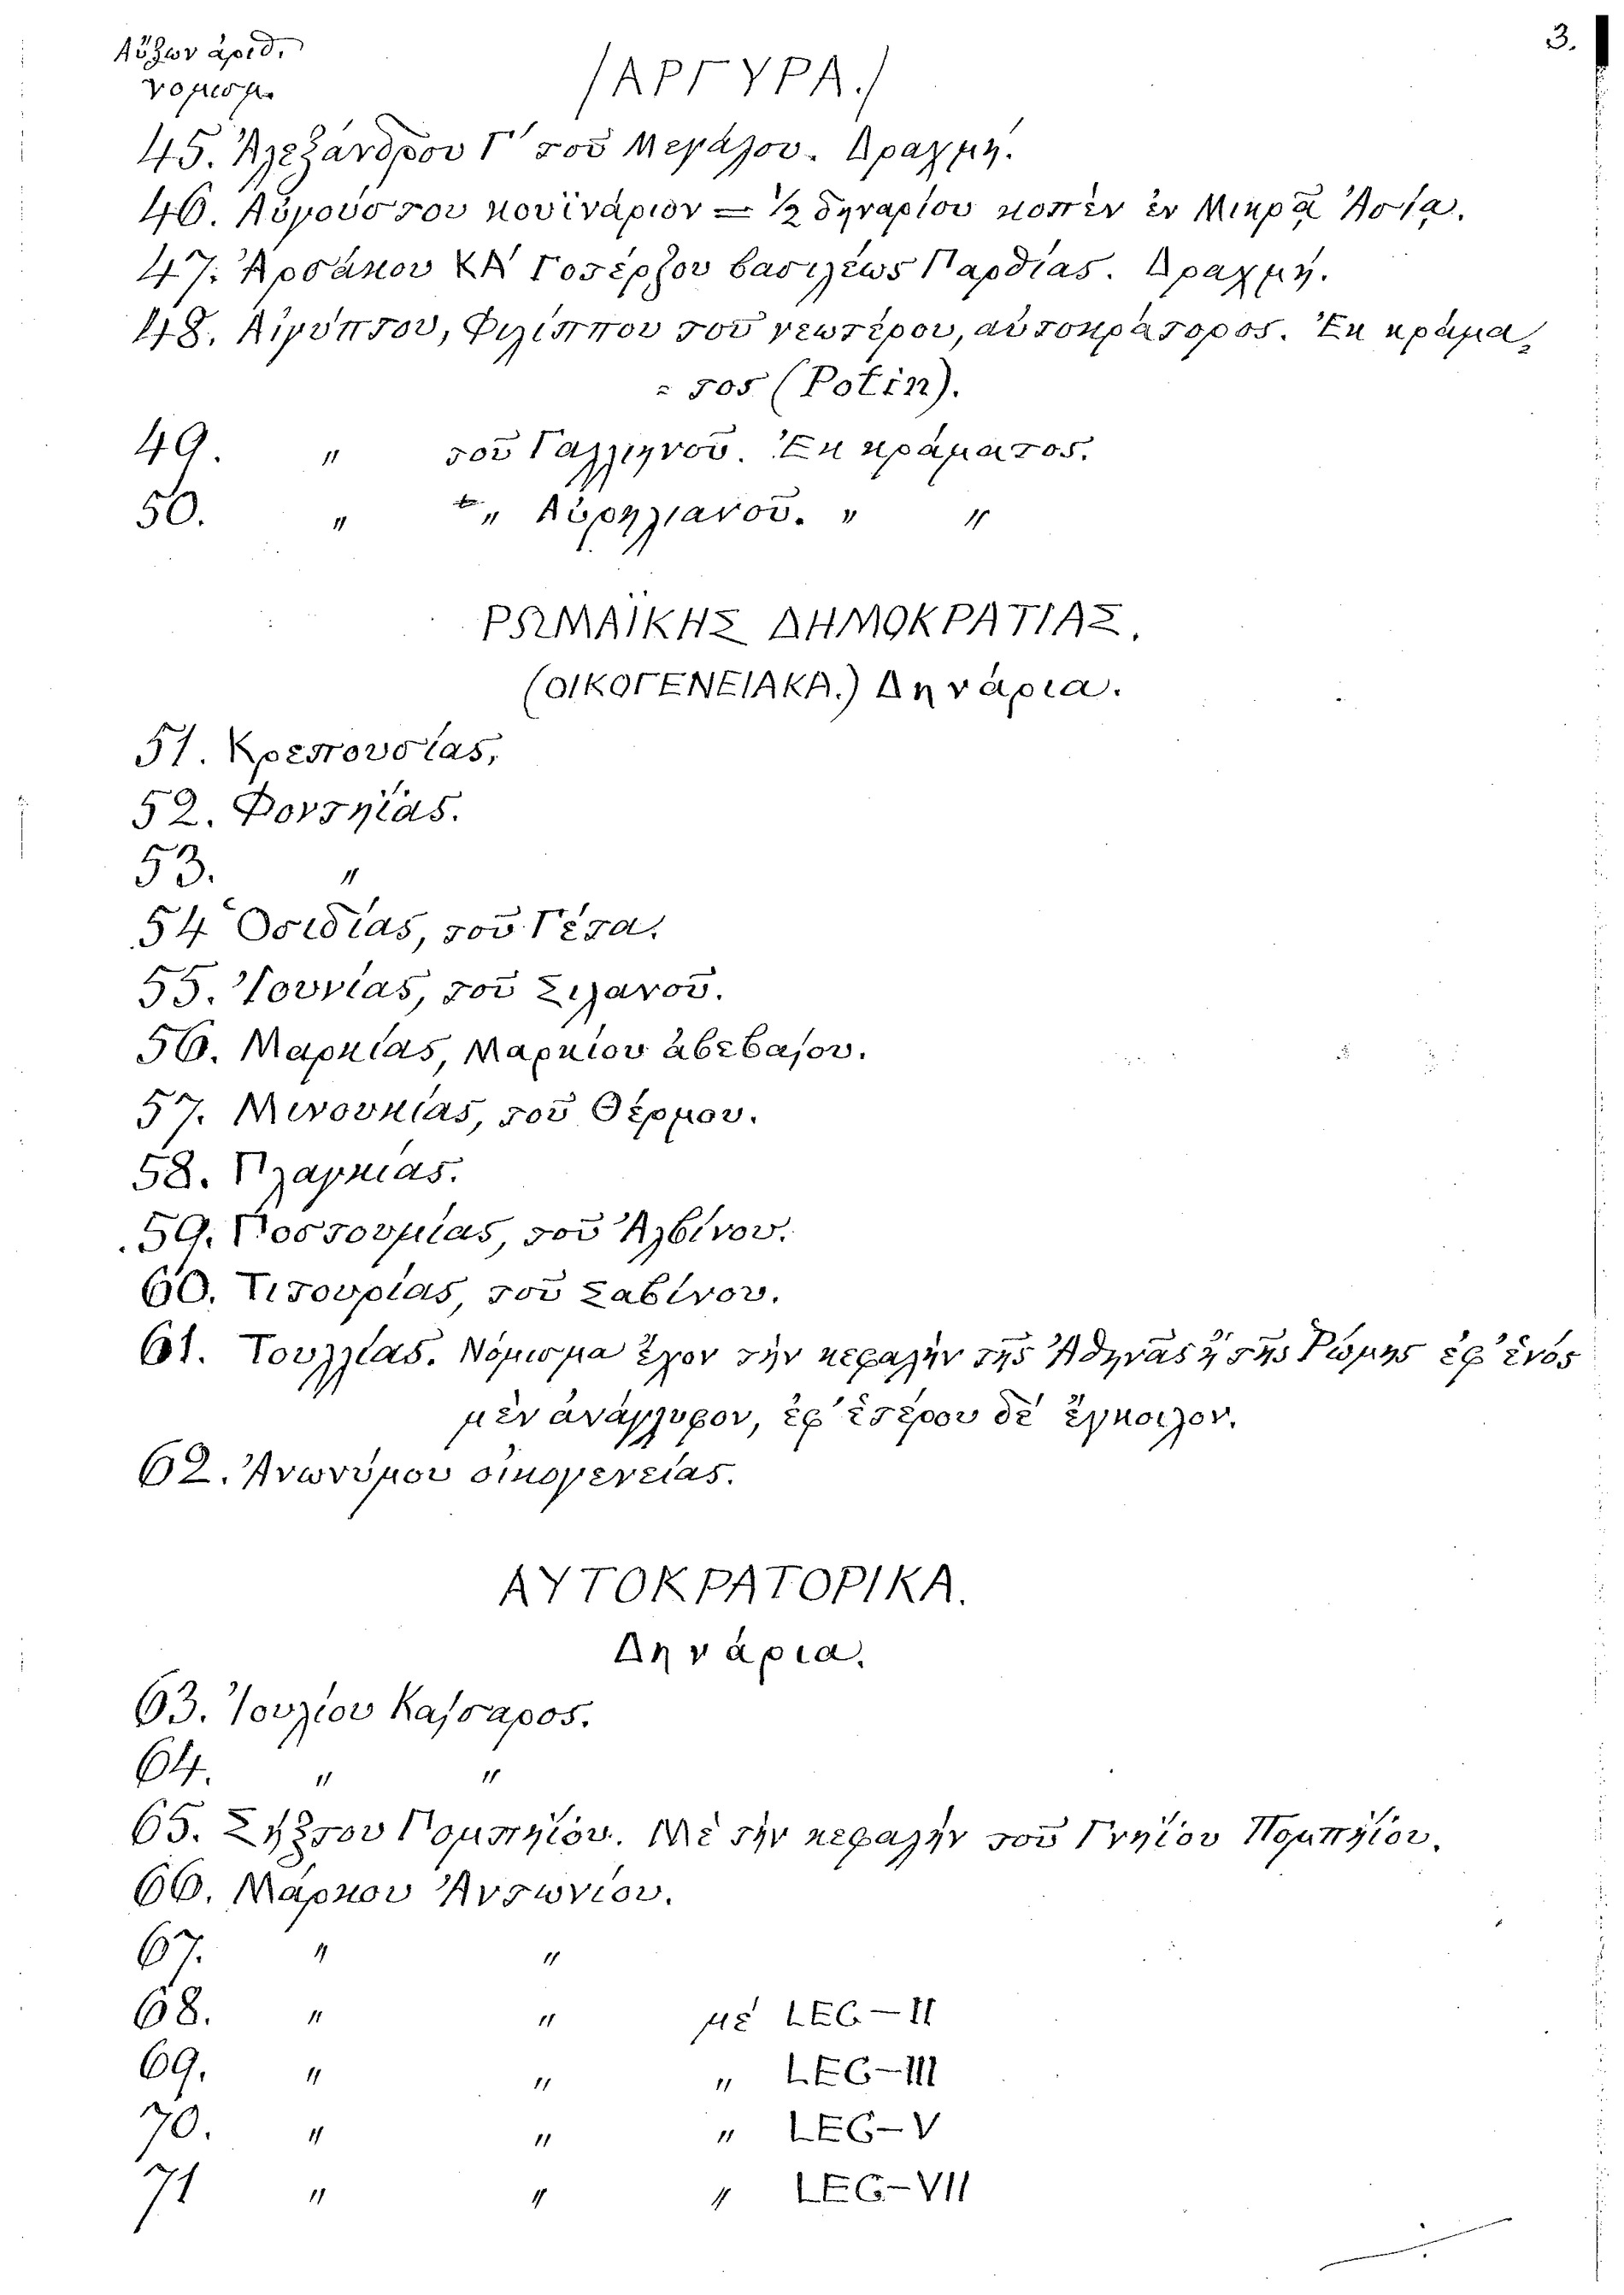 Αὔξων ἀριθ. 3.
νομισμ. /ΑΡΓΥΡΑ./
45. Ἀλεξάνδρου Γ' τοῦ Μεγάλου. Δραχμή.
46. Αὐγούστου κουϊνάριον = ½ δηναρίου κοπὲν ἐν Μικρᾷ Ἀσίᾳ.
47. Ἀρσάκου ΚΑ' Γοτέρζου βασιλέως Παρθίας. Δραχμή.
48. Αἰγύπτου, Φιλίππου τοῦ νεωτέρου, αὐτοκράτορος. Ἐκ κράμα-
= τος (Potin).
49. " τοῦ Γαλλιηνοῦ. Ἐκ κράματος.
50. " " Αὐρηλιανοῦ. " "
ΡΩΜΑΪΚΗΣ ΔΗΜΟΚΡΑΤΙΑΣ.
(ΟΙΚΟΓΕΝΕΙΑΚΑ.) Δηνάρια.
51. Κρεπουσίας.
52. Φοντηΐας.
53. "
54 Ὀσιδίας, τοῦ Γέτα.
55. Ἰουνίας, τοῦ Σιλανοῦ.
56. Μαρκίας, Μαρκίου ἀβεβαίου.
57. Μινουκίας, τοῦ Θέρμου.
58. Πλαγκίας.
59. Ποστουμίας, τοῦ Ἀλβίνου.
60. Τιτουρίας, τοῦ Σαβίνου.
61. Τουλλίας. Νόμισμα ἔχον τὴν κεφαλὴν τῆς Ἀθηνᾶς ἢ τῆς Ρώμης ἐφ' ἑνὸς
μὲν ἀνάγλυφον, ἐφ' ἑτέρου δὲ ἔγκοιλον.
62. Ἀνωνύμου οἰκογενείας.
ΑΥΤΟΚΡΑΤΟΡΙΚΑ.
Δηνάρια.
63. Ἰουλίου Καίσαρος.
64. " "
65. Σήξτου Πομπηΐου. Μὲ τὴν κεφαλὴν τοῦ Γνηΐου Πομπηΐου.
66. Μάρκου Ἀντωνίου.
67. " "
68. " " μὲ LEG-II
69. " " " LEG-III
70. " " " LEG-V
71 " " " LEG-VII